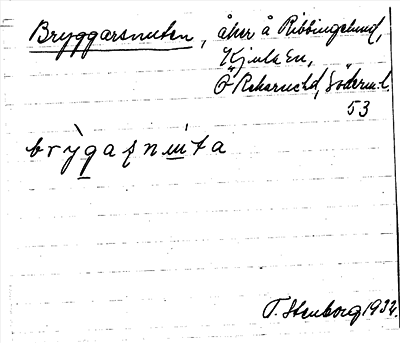 Bryggarsnuten, åker å Ribbingelund,
Kjula sn,
Ö Rekarne hd, Söderm. l.
53
brỳgaʂnuta
T. Stenborg 1932.